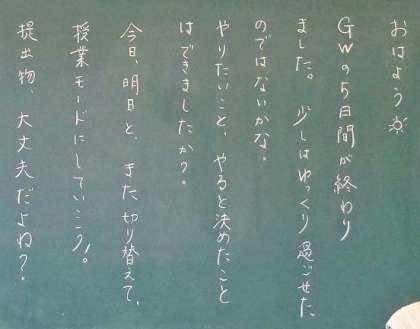 おはよう☀
GWの5日間が終わり
ました。少しはゆっくり過ごせた
のではないかな。
やりたいこと、やると決めたこと
はできましたか?
今日、明日と、また切り替えて、
授業モードにしていこう!
提出物、大丈夫だよね?